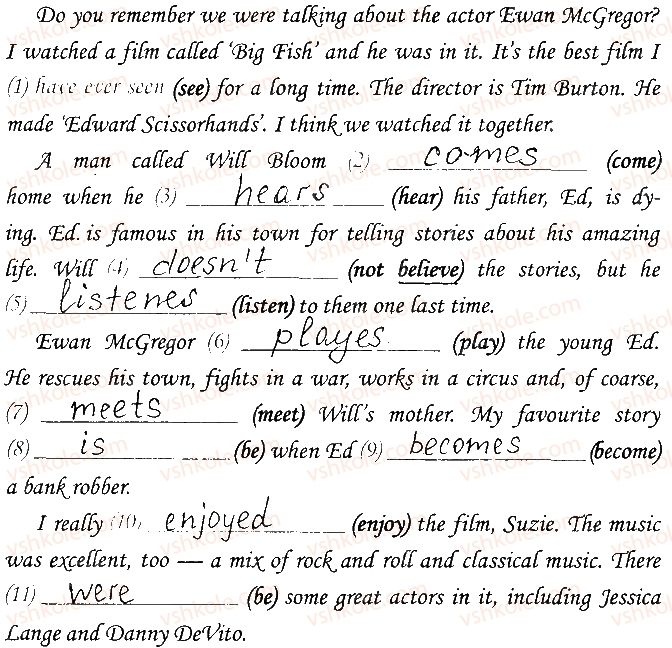 Do you remember we were talking about the actor Ewan McGregor?
I watched a film called ‘Big Fish’ and he was in it. It’s the best film I
(1) have ever seen (see) for a long time. The director is Tim Burton. He
made ‘Edward Scissorhands’. I think we watched it together.
A man called Will Bloom (2) comes (come)
home when he (3) hears (hear) his father, Ed, is dy-
ing. Ed. is famous in his town for telling stories about his amazing
life. Will (4) doesn't (not believe) the stories, but he
(5) listenes (listen) to them one last time.
Ewan McGregor (6) playes (play) the young Ed.
He rescues his town, fights in a war, works in a circus and, of coarse,
(7) meets (meet) Will’s mother. My favourite story
(8) is (be) when Ed (9) becomes (become)
a bank robber.
I really (10) enjoyed (enjoy) the film, Suzie. The music
was excellent, too — a mix of rock and roll and classical music. There
(11) were (be) some great actors in it, including Jessica
Lange and Danny DeVito.
vshkole.com